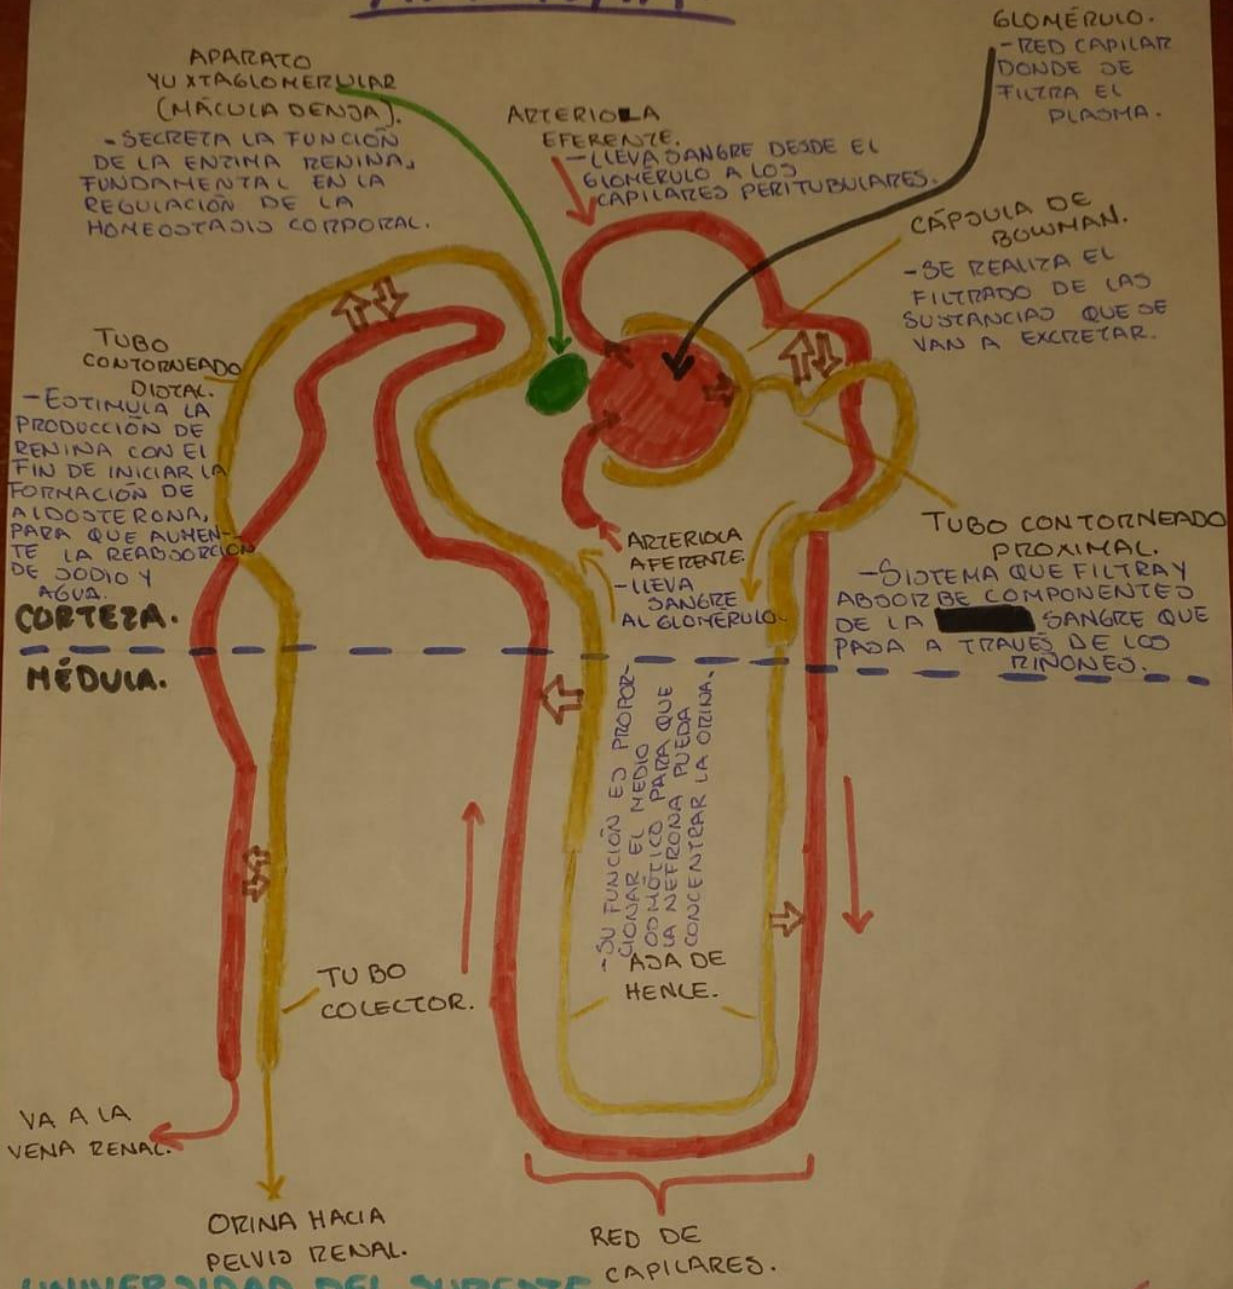 APARATO
YUXTAGLOMERULAR
(MÁCULA DENSA).
- SECRETA LA FUNCIÓN
DE LA ENZIMA RENINA,
FUNDAMENTAL EN LA
REGULACIÓN DE LA
HOMEOSTASIS CORPORAL.
ARTERIOLA
EFERENTE.
- LLEVA SANGRE DESDE EL
GLOMÉRULO A LOS
CAPILARES PERITUBULARES.
GLOMÉRULO.
- RED CAPILAR
DONDE SE
FILTRA EL
PLASMA.
CÁPSULA DE
BOWMAN.
- SE REALIZA EL
FILTRADO DE LAS
SUSTANCIAS QUE SE
VAN A EXCRETAR.
TUBO
CONTORNEADO
DISTAL.
- ESTIMULA LA
PRODUCCIÓN DE
RENINA CON EL
FIN DE INICIAR LA
FORMACIÓN DE
ALDOSTERONA,
PARA QUE AUMEN-
TE LA REABSORCIÓN
DE SODIO Y
AGUA.
ARTERIOLA
AFERENTE.
- LLEVA
SANGRE
AL GLOMÉRULO.
TUBO CONTORNEADO
PROXIMAL.
- SISTEMA QUE FILTRA Y
ABSORBE COMPONENTES
DE LA SANGRE QUE
PASA A TRAVÉS DE LOS
RIÑONES.
CORTEZA.
MÉDULA.
- SU FUNCIÓN ES PROPOR-
CIONAR EL MEDIO
OSMÓTICO PARA QUE
LA NEFRONA PUEDA
CONCENTRAR LA ORINA.
ASA DE
HENLE.
TUBO
COLECTOR.
VA A LA
VENA RENAL.
ORINA HACIA
PELVIS RENAL.
RED DE
CAPILARES.
UNIVERSIDAD DEL SURESTE